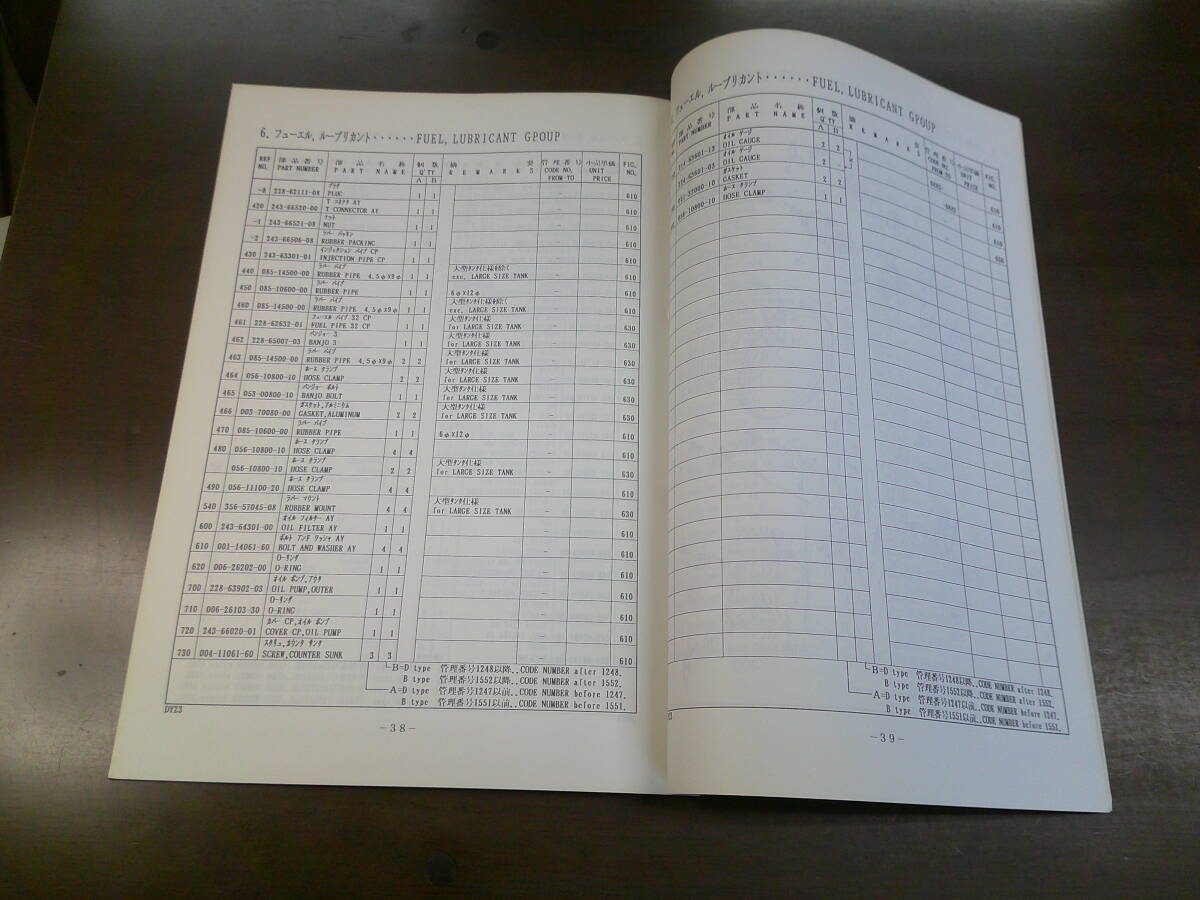 6. フューエル, ルーブリカント‥‥‥FUEL, LUBRICANT GPOUP
REF NO. 部品番号 PART NUMBER 部品名称 PART NAME 個数 Q'TY A B 摘要 REMARKS 管理番号 CODE NO. FROM-TO 小売単価 UNIT PRICE FIG. NO.
228-62111-08 プラグ PLUG 1 1 - 610
420 243-66520-00 T コネクタ AY T CONNECTOR AY 1 1 - 610
-1 243-66521-08 ナット NUT 1 1 - 610
-2 243-66506-08 ラバー パッキン RUBBER PACKING 1 1 - 610
430 243-63301-01 インジェクション パイプ CP INJECTION PIPE CP 1 1 - 610
440 085-14500-00 ラバー パイプ RUBBER PIPE 4.5φx9φ 1 1 大型タンク仕様を除く exc. LARGE SIZE TANK - 610
450 085-10600-00 ラバー パイプ RUBBER PIPE 1 1 6φx12φ - 610
460 085-14500-00 ラバー パイプ RUBBER PIPE 4.5φx9φ 1 1 大型タンク仕様を除く exc. LARGE SIZE TANK - 610
461 228-62632-01 フューエル パイプ 32 CP FUEL PIPE 32 CP 1 1 大型タンク仕様 for LARGE SIZE TANK - 630
462 228-65007-03 バンジョー 3 BANJO 3 1 1 大型タンク仕様 for LARGE SIZE TANK - 630
463 085-14500-00 ラバー パイプ RUBBER PIPE 4.5φx9φ 2 2 大型タンク仕様 for LARGE SIZE TANK - 630
464 056-10800-10 ホース クランプ HOSE CLAMP 2 2 大型タンク仕様 for LARGE SIZE TANK - 630
465 053-00800-10 バンジョー ボルト BANJO BOLT 1 1 大型タンク仕様 for LARGE SIZE TANK - 630
466 003-70080-00 ガスケット,アルミニウム GASKET,ALUMINUM 2 2 大型タンク仕様 for LARGE SIZE TANK - 630
470 085-10600-00 ラバー パイプ RUBBER PIPE 1 1 6φx12φ - 610
480 056-10800-10 ホース クランプ HOSE CLAMP 4 4 - 610
056-10800-10 ホース クランプ HOSE CLAMP 2 2 大型タンク仕様 for LARGE SIZE TANK - 630
490 056-11100-20 ホース クランプ HOSE CLAMP 4 4 - 610
540 356-57045-08 ラバー マウント RUBBER MOUNT 4 4 大型タンク仕様 for LARGE SIZE TANK - 630
600 243-64301-00 オイル フィルター AY OIL FILTER AY 1 1 - 610
610 001-14061-60 ボルト アンド ワッシャ AY BOLT AND WASHER AY 4 4 - 610
620 006-26202-00 O-リング O-RING 1 1 - 610
700 228-63902-03 オイル ポンプ,アウタ OIL PUMP,OUTER 1 1 - 610
710 006-26103-30 O-リング O-RING 1 1 - 610
720 243-66020-01 カバー CP,オイル ポンプ COVER CP,OIL PUMP 1 1 - 610
730 004-11061-60 スクリュ,カウンタ サンク SCREW,COUNTER SUNK 3 3 - 610
B=D type 管理番号1248以降..CODE NUMBER after 1248.
B type 管理番号1552以降..CODE NUMBER after 1552.
A=D type 管理番号1247以前..CODE NUMBER before 1247.
B type 管理番号1551以前..CODE NUMBER before 1551.
DY23
-38-
フューエル, ルーブリカント‥‥‥FUEL, LUBRICANT GPOUP
部品番号 PART NUMBER 部品名称 PART NAME 個数 Q'TY A B 摘要 REMARKS 管理番号 CODE NO. FROM-TO 小売単価 UNIT PRICE FIG. NO.
オイル ゲージ OIL GAUGE 2 2 610
オイル ゲージ OIL GAUGE 2 - 610
ガスケット GASKET 2 2 610
ホース クランプ HOSE CLAMP 1 1
B=D type 管理番号1248以降..CODE NUMBER after 1248.
B type 管理番号1552以降..CODE NUMBER after 1552.
A=D type 管理番号1247以前..CODE NUMBER before 1247.
B type 管理番号1551以前..CODE NUMBER before 1551.
-39-